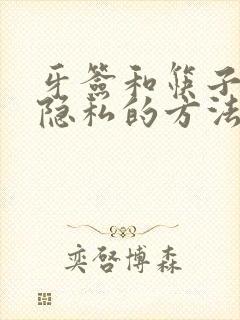 牙签和筷子
隐私的方法
奕啓博森